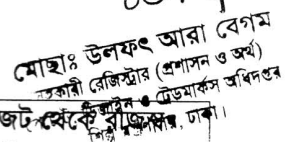 মোছাঃ উলফৎ আরা বেগম
সহকারী রেজিস্ট্রার (প্রশাসন ও অর্থ)
ডিজাইন ও ট্রেডমার্কস অধিদপ্তর
জট থেকে
ঢাকা।